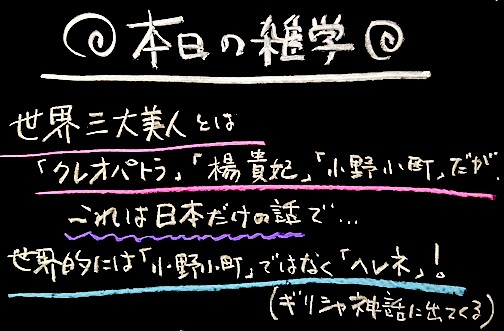 本日の雑学
世界三大美人とは
「クレオパトラ」「楊貴妃」「小野小町」だが、
これは日本だけの話で…
世界的には「小野小町」ではなく「ヘレネ」!
(ギリシャ神話に出てくる)